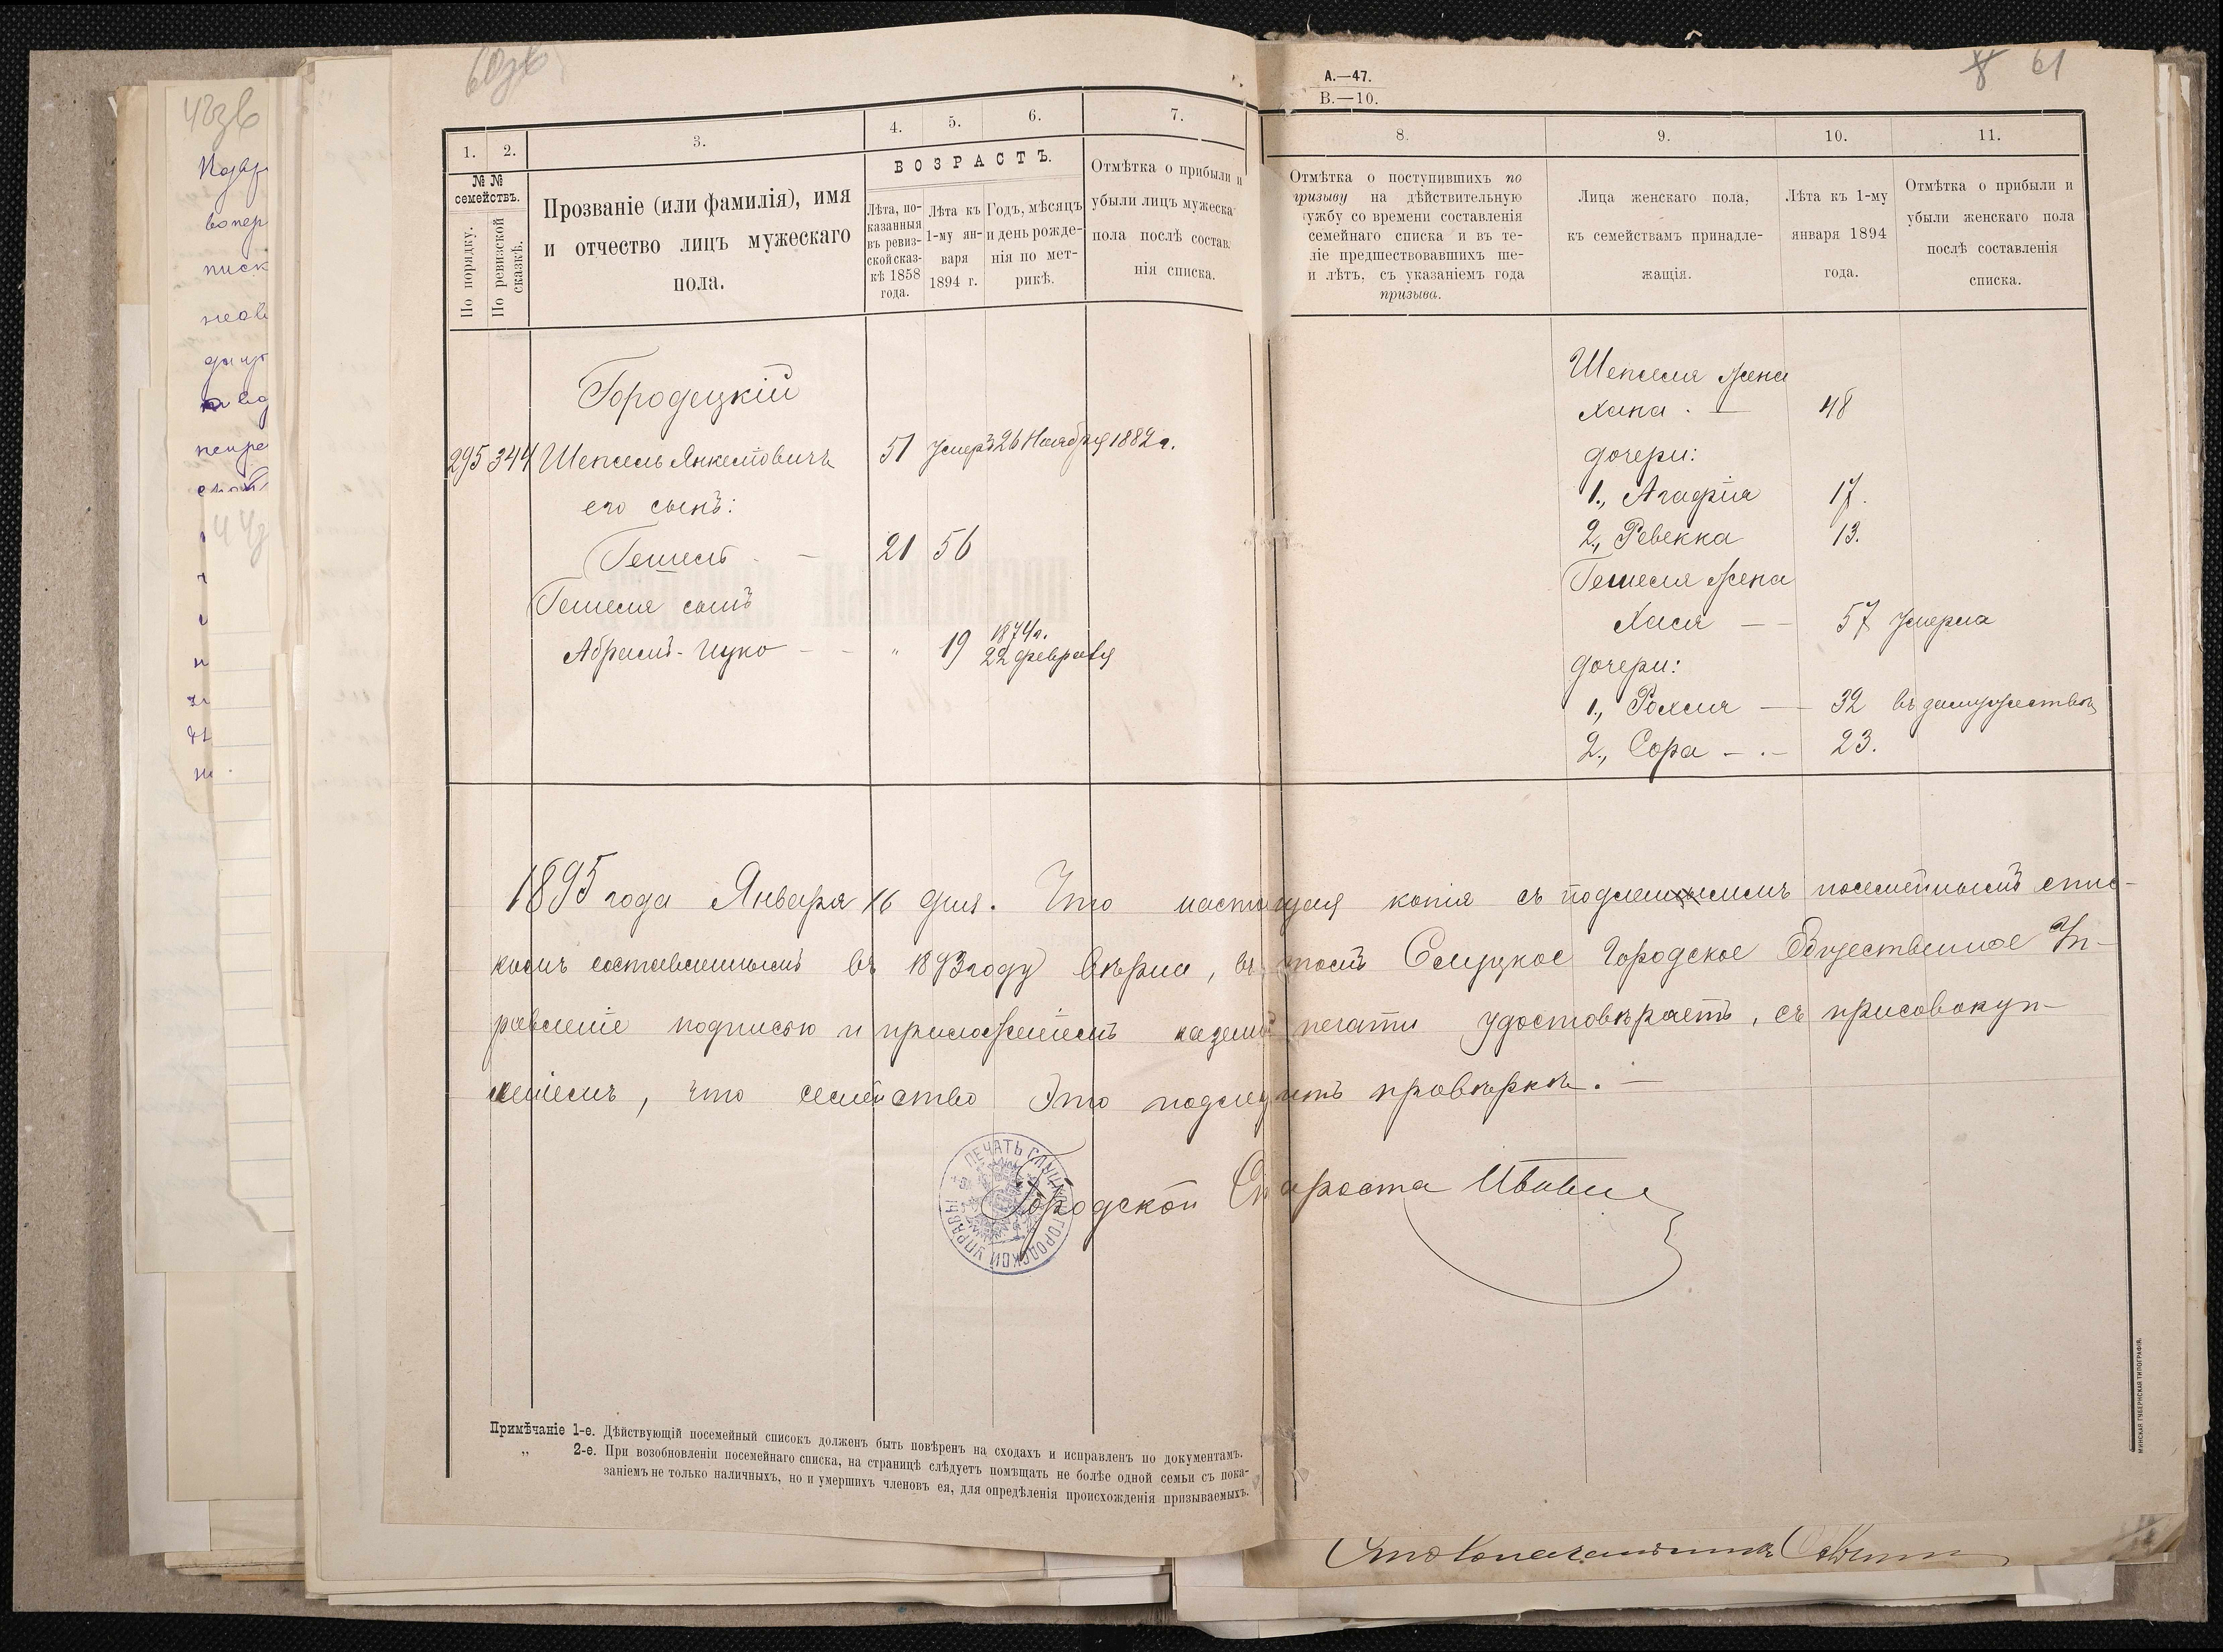 60зв
А.—47.
В.—10.
8 61
1. 2. 3. 4. 5. 6. 7. 8. 9. 10. 11.
№ №
семействъ.
По порядку.
По ревизской
сказкѣ.
Прозваніе (или фамилія), имя
и отчество лицъ мужескаго
пола.
ВОЗРАСТЪ.
Лѣта, по-
казанныя
въ ревиз-
ской сказ-
кѣ 1858
года.
Лѣта къ
1-му ян-
варя
1894 г.
Годъ, мѣсяцъ
и день рожде-
нія по мет-
рикѣ.
Отмѣтка о прибыли и
убыли лицъ мужеска
пола послѣ состав
нія списка.
Отмѣтка о поступившихъ по
призыву на дѣйствительную
ужбу со времени составленія
семейнаго списка и въ те-
ліе предшествовавшихъ ше-
и лѣтъ, съ указаніемъ года
призыва.
Лица женскаго пола,
къ семействамъ принадле-
жащія.
Лѣта къ 1-му
января 1894
года.
Отмѣтка о прибыли и
убыли женскаго пола
послѣ составленія
списка.
Городецкій
295 344 Шепсель Янкелевичъ 51 умеръ 26 Ноября 1882 г.
его сынъ:
Гешель - - 21 56
Гешеля сынъ
Абрамъ-Ицко - - " 19 1874 г.
22 февраля
Шепселя жена
Хана . — 48
дочери:
1., Агафія 17.
2., Ревекка 13.
Гешеля жена
Хася — — 57 умерла
дочери:
1., Рохля — 32 въ замужествѣ
2., Сора — . — 23.
1895 года Января 16 дня. Что настоящая копія съ подлиннымъ посемейнымъ спис-
комъ составленнымъ въ 1893 году вѣрна, въ томъ Слуцкое Городское Общественное Уп-
равленіе подписью и приложеніемъ казенной печати удостовѣряетъ, съ присовокуп-
леніемъ, что семейство это подлежитъ провѣркѣ. —
Городской Староста
ПЕЧАТЬ СЛУЦКОЙ ГОРОДСКОЙ УПРАВЫ
Примѣчаніе 1-е. Дѣйствующій посемейный списокъ долженъ быть повѣренъ на сходахъ и исправленъ по документамъ.
„ 2-е. При возобновленіи посемейнаго списка, на страницѣ слѣдуетъ помѣщать не болѣе одной семьи съ пока-
заніемъ не только наличныхъ, но и умершихъ членовъ ея, для опредѣленія происхожденія призываемыхъ.
МИНСКАЯ ГУБЕРНСКАЯ ТИПОГРАФІЯ.
Столоначальникъ